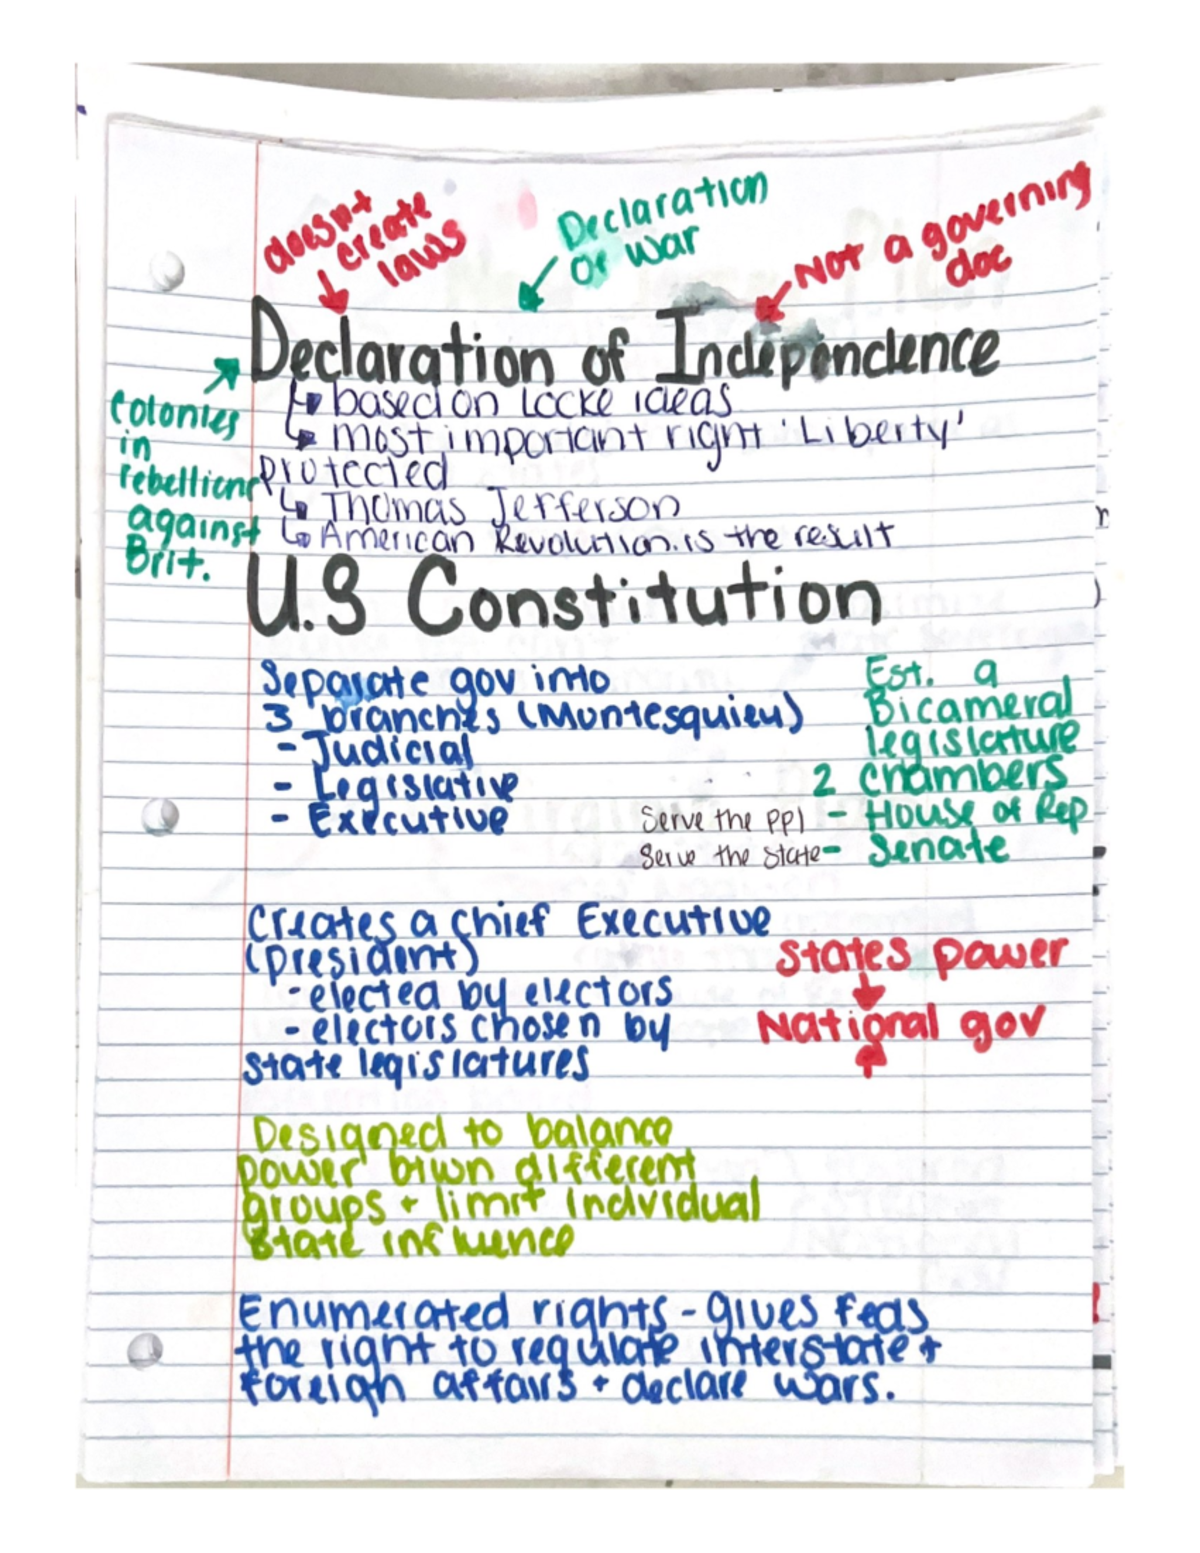 doesnt
create
laws
Declaration
of war
Not a governing
doc
Declaration of Independence
Colonies
in
rebellion
against
Brit.
↳ based on Locke ideas
↳ most important right 'Liberty'
protected
↳ Thomas Jefferson
↳ American Revolution is the result
U.S Constitution
Separate gov into
3 branches (Montesquieu)
- Judicial
- Legislative
- Executive
Est. a
Bicameral
legislature
2 chambers
Serve the ppl - House of Rep
Serve the state - Senate
Creates a chief Executive
(president)
- elected by electors
- electors chosen by
state legislatures
States power
↓
National gov
↑
Designed to balance
power btwn different
groups + limit individual
state influence
Enumerated rights - gives feds
the right to regulate interstate +
foreign affairs + declare wars.